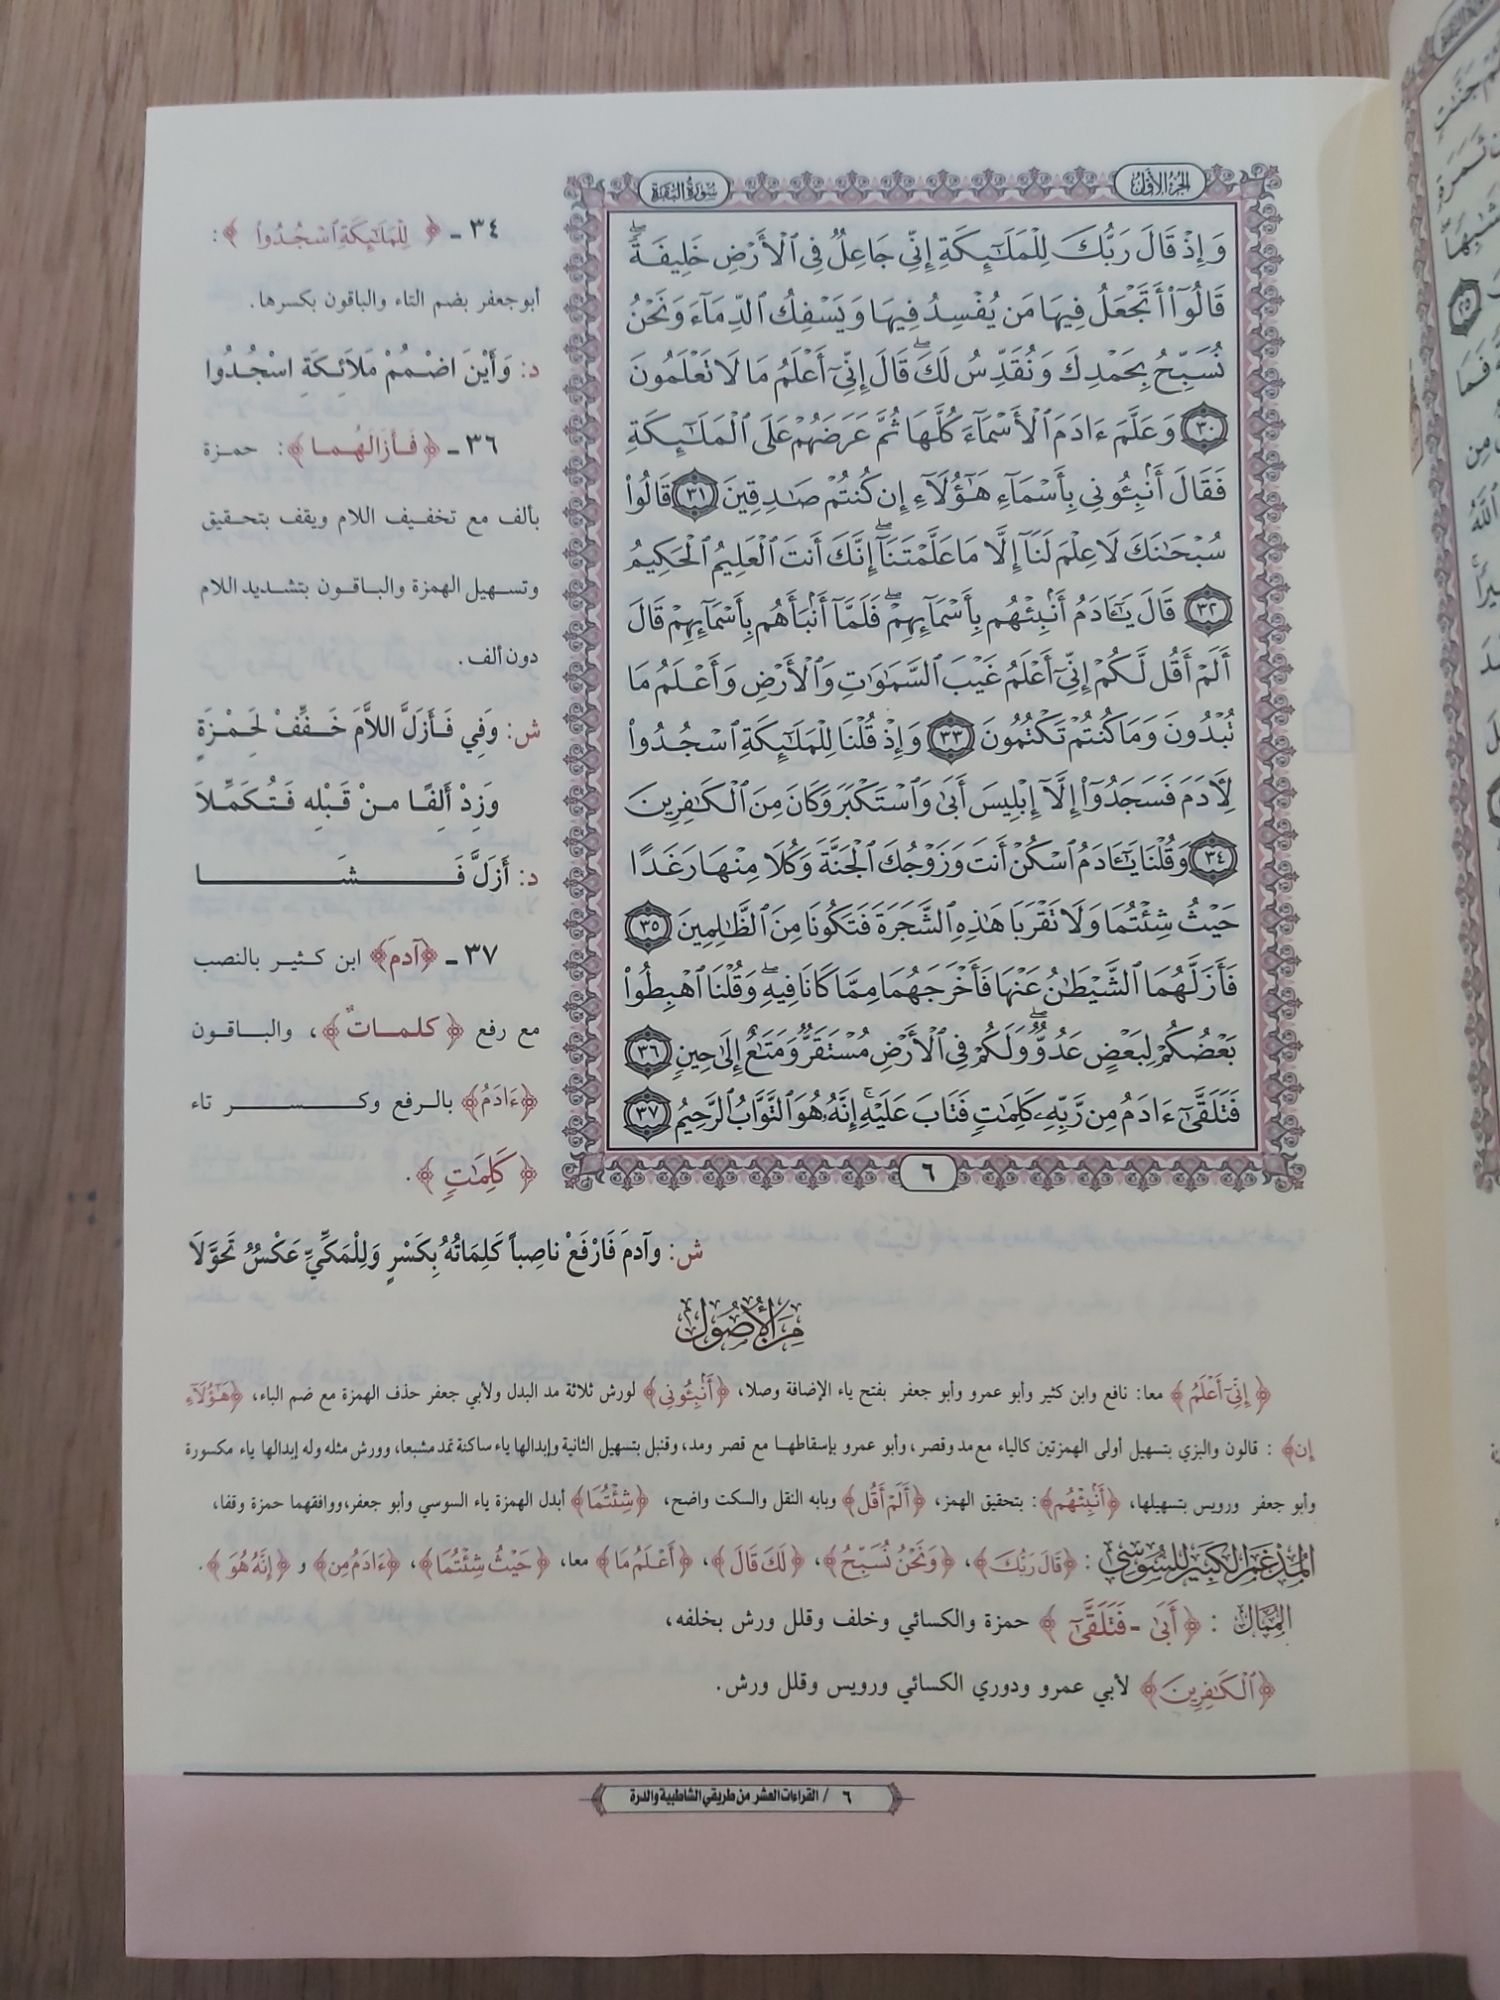 الجزء الأول
سورة البقرة
وَإِذْ قَالَ رَبُّكَ لِلْمَلَٰٓئِكَةِ إِنِّي جَاعِلٌ فِي ٱلْأَرْضِ خَلِيفَةً ۖ
قَالُوٓا۟ أَتَجْعَلُ فِيهَا مَن يُفْسِدُ فِيهَا وَيَسْفِكُ ٱلدِّمَآءَ وَنَحْنُ
نُسَبِّحُ بِحَمْدِكَ وَنُقَدِّسُ لَكَ ۖ قَالَ إِنِّيٓ أَعْلَمُ مَا لَا تَعْلَمُونَ
٣٠ وَعَلَّمَ ءَادَمَ ٱلْأَسْمَآءَ كُلَّهَا ثُمَّ عَرَضَهُمْ عَلَى ٱلْمَلَٰٓئِكَةِ
فَقَالَ أَنۢبِـُٔونِي بِأَسْمَآءِ هَٰٓؤُلَآءِ إِن كُنتُمْ صَٰدِقِينَ ٣١ قَالُوا۟
سُبْحَٰنَكَ لَا عِلْمَ لَنَآ إِلَّا مَا عَلَّمْتَنَآ ۖ إِنَّكَ أَنتَ ٱلْعَلِيمُ ٱلْحَكِيمُ
٣٢ قَالَ يَٰٓـَٔادَمُ أَنۢبِئْهُم بِأَسْمَآئِهِمْ ۖ فَلَمَّآ أَنۢبَأَهُم بِأَسْمَآئِهِمْ قَالَ
أَلَمْ أَقُل لَّكُمْ إِنِّيٓ أَعْلَمُ غَيْبَ ٱلسَّمَٰوَٰتِ وَٱلْأَرْضِ وَأَعْلَمُ مَا
تُبْدُونَ وَمَا كُنتُمْ تَكْتُمُونَ ٣٣ وَإِذْ قُلْنَا لِلْمَلَٰٓئِكَةِ ٱسْجُدُوا۟
لِـَٔادَمَ فَسَجَدُوٓا۟ إِلَّآ إِبْلِيسَ أَبَىٰ وَٱسْتَكْبَرَ وَكَانَ مِنَ ٱلْكَٰفِرِينَ
٣٤ وَقُلْنَا يَٰٓـَٔادَمُ ٱسْكُنْ أَنتَ وَزَوْجُكَ ٱلْجَنَّةَ وَكُلَا مِنْهَا رَغَدًا
حَيْثُ شِئْتُمَا وَلَا تَقْرَبَا هَٰذِهِ ٱلشَّجَرَةَ فَتَكُونَا مِنَ ٱلظَّٰلِمِينَ ٣٥
فَأَزَلَّهُمَا ٱلشَّيْطَٰنُ عَنْهَا فَأَخْرَجَهُمَا مِمَّا كَانَا فِيهِ ۖ وَقُلْنَا ٱهْبِطُوا۟
بَعْضُكُمْ لِبَعْضٍ عَدُوٌّ ۖ وَلَكُمْ فِي ٱلْأَرْضِ مُسْتَقَرٌّ وَمَتَٰعٌ إِلَىٰ حِينٍ ٣٦
فَتَلَقَّىٰٓ ءَادَمُ مِن رَّبِّهِۦ كَلِمَٰتٍ فَتَابَ عَلَيْهِ ۚ إِنَّهُۥ هُوَ ٱلتَّوَّابُ ٱلرَّحِيمُ ٣٧
٦
٣٤ - ﴿لِلْمَلَٰٓئِكَةِ ٱسْجُدُوا۟﴾:
أبو جعفر بضم التاء والباقون بكسرها.
د: وَأَيْنَ اضْمُمْ مَلاَئِكَةِ اسْجُدُوا
٣٦ - ﴿فَأَزَالَهُما﴾: حمزة
بألف مع تخفيف اللام ويقف بتحقيق
وتسهيل الهمزة والباقون بتشديد اللام
دون ألف.
ش: وَفِي فَأَزَلَّ اللاَّمَ خَفِّفْ لِحَمْزَةٍ
وَزِدْ أَلِفًا مِنْ قَبْلِهِ فَتُكَمِّلاَ
د: أَزَلَّ فَشَا
٣٧ - ﴿آدمَ﴾ ابن كثير بالنصب
مع رفع ﴿كلماتٌ﴾، والباقون
﴿ءَادَمُ﴾ بالرفع وكسر تاء
﴿كَلِمَٰتٍ﴾.
ش: وآدمَ فَارْفَعْ ناصِباً كَلِمَاتُهُ بِكَسْرٍ وَلِلْمَكِّيِّ عَكْسٌ تَحَوَّلاَ
مِنَ الأُصُول
﴿إِنِّيٓ أَعْلَمُ﴾ معا: نافع وابن كثير وأبو عمرو وأبو جعفر بفتح ياء الإضافة وصلا، ﴿أَنۢبِـُٔونِي﴾ لورش ثلاثة مد البدل ولأبي جعفر حذف الهمزة مع ضم الباء، ﴿هَٰٓؤُلَآءِ
إِن﴾: قالون والبزي بتسهيل أولى الهمزتين كالياء مع مد وقصر، وأبو عمرو بإسقاطها مع قصر ومد، وقنبل بتسهيل الثانية وإبدالها ياء ساكنة تمد مشبعا، وورش مثله وله إبدالها ياء مكسورة
وأبو جعفر ورويس بتسهيلها، ﴿أَنۢبِئْهُم﴾: بتحقيق الهمز، ﴿أَلَمْ أَقُل﴾ وبابه النقل والسكت واضح، ﴿شِئْتُمَا﴾ أبدل الهمزة ياء السوسي وأبو جعفر، ووافقهما حمزة وقفا،
المُدغَم الكبير للسوسي: ﴿قَالَ رَبُّكَ﴾، ﴿وَنَحْنُ نُسَبِّحُ﴾، ﴿لَكَ قَالَ﴾، ﴿أَعْلَمُ مَا﴾ معا، ﴿حَيْثُ شِئْتُمَا﴾، ﴿ءَادَمُ مِن﴾ و ﴿إِنَّهُ هُوَ﴾.
المُمَال: ﴿أَبَىٰ - فَتَلَقَّىٰٓ﴾ حمزة والكسائي وخلف وقلل ورش بخلفه،
﴿ٱلْكَٰفِرِينَ﴾ لأبي عمرو ودوري الكسائي ورويس وقلل ورش.
٦ / القراءات العشر من طريقي الشاطبية والدرة